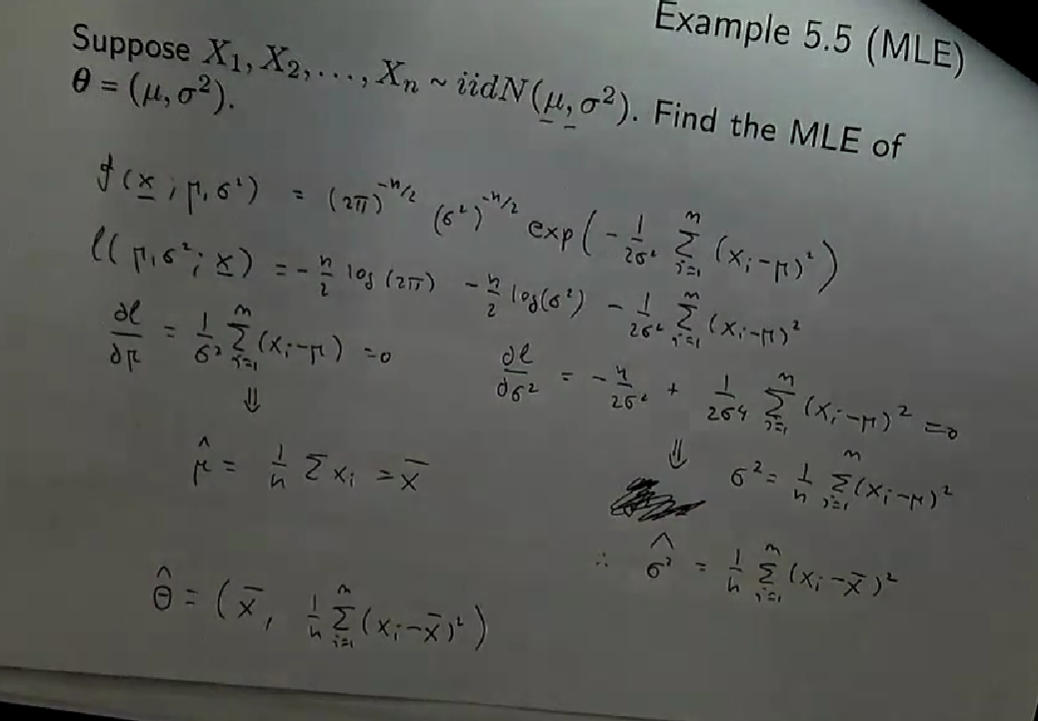 Example 5.5 (MLE)
Suppose X₁, X₂, ..., Xₙ ~ iidN(μ, σ²). Find the MLE of
θ = (μ, σ²).
f(x; μ, σ²) = (2π)^(-n/2) (σ²)^(-n/2) exp(-1/(2σ²) Σᵢ₌₁ⁿ (xᵢ-μ)²)
ℓ(μ, σ²; x) = -n/2 log(2π) -n/2 log(σ²) - 1/(2σ²) Σᵢ₌₁ⁿ (xᵢ-μ)²
∂ℓ/∂μ = 1/σ² Σᵢ₌₁ⁿ (xᵢ-μ) =0 ∂ℓ/∂σ² = -n/(2σ²) + 1/(2σ⁴) Σᵢ₌₁ⁿ (xᵢ-μ)² =0
⇓ ⇓ σ² = 1/n Σᵢ₌₁ⁿ (xᵢ-μ)²
μ̂ = 1/n Σxᵢ = x̄
∴ σ̂² = 1/n Σᵢ₌₁ⁿ (xᵢ-x̄)²
θ̂ = (x̄, 1/n Σᵢ₌₁ⁿ (xᵢ-x̄)²)